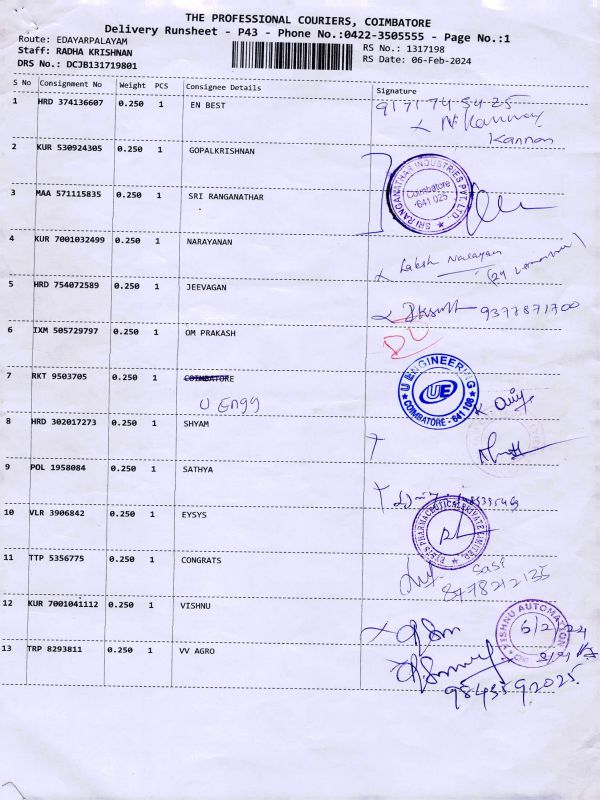 THE PROFESSIONAL COURIERS, COIMBATORE
Delivery Runsheet - P43 - Phone No.:0422-3505555 - Page No.:1
Route: EDAYARPALAYAM RS No.: 1317198
Staff: RADHA KRISHNAN RS Date: 06-Feb-2024
DRS No.: DCJB131719801
S No Consignment No Weight PCS Consignee Details Signature
1 HRD 374136607 0.250 1 EN BEST
Kannan
2 KUR 530924305 0.250 1 GOPALKRISHNAN
3 MAA 571115835 0.250 1 SRI RANGANATHAR
SRI RANGANATHAR INDUSTRIES PVT. LTD.
Coimbatore
641 025
4 KUR 7001032499 0.250 1 NARAYANAN
Narayanan
5 HRD 754072589 0.250 1 JEEVAGAN
9377871700
6 IXM 505729797 0.250 1 OM PRAKASH
DU
7 RKT 9503705 0.250 1 COIMBATORE
U Engg
U ENGINEERING
UE
COIMBATORE - 641 108
8 HRD 302017273 0.250 1 SHYAM
9 POL 1958084 0.250 1 SATHYA
10 VLR 3906842 0.250 1 EYSYS
EYSYS PHARMACEUTICAL PRIVATE LIMITED
11 TTP 5356775 0.250 1 CONGRATS
Sasi
8778212135
12 KUR 7001041112 0.250 1 VISHNU
VISHNU AUTOMATION
6/2/24
13 TRP 8293811 0.250 1 VV AGRO
9843592025